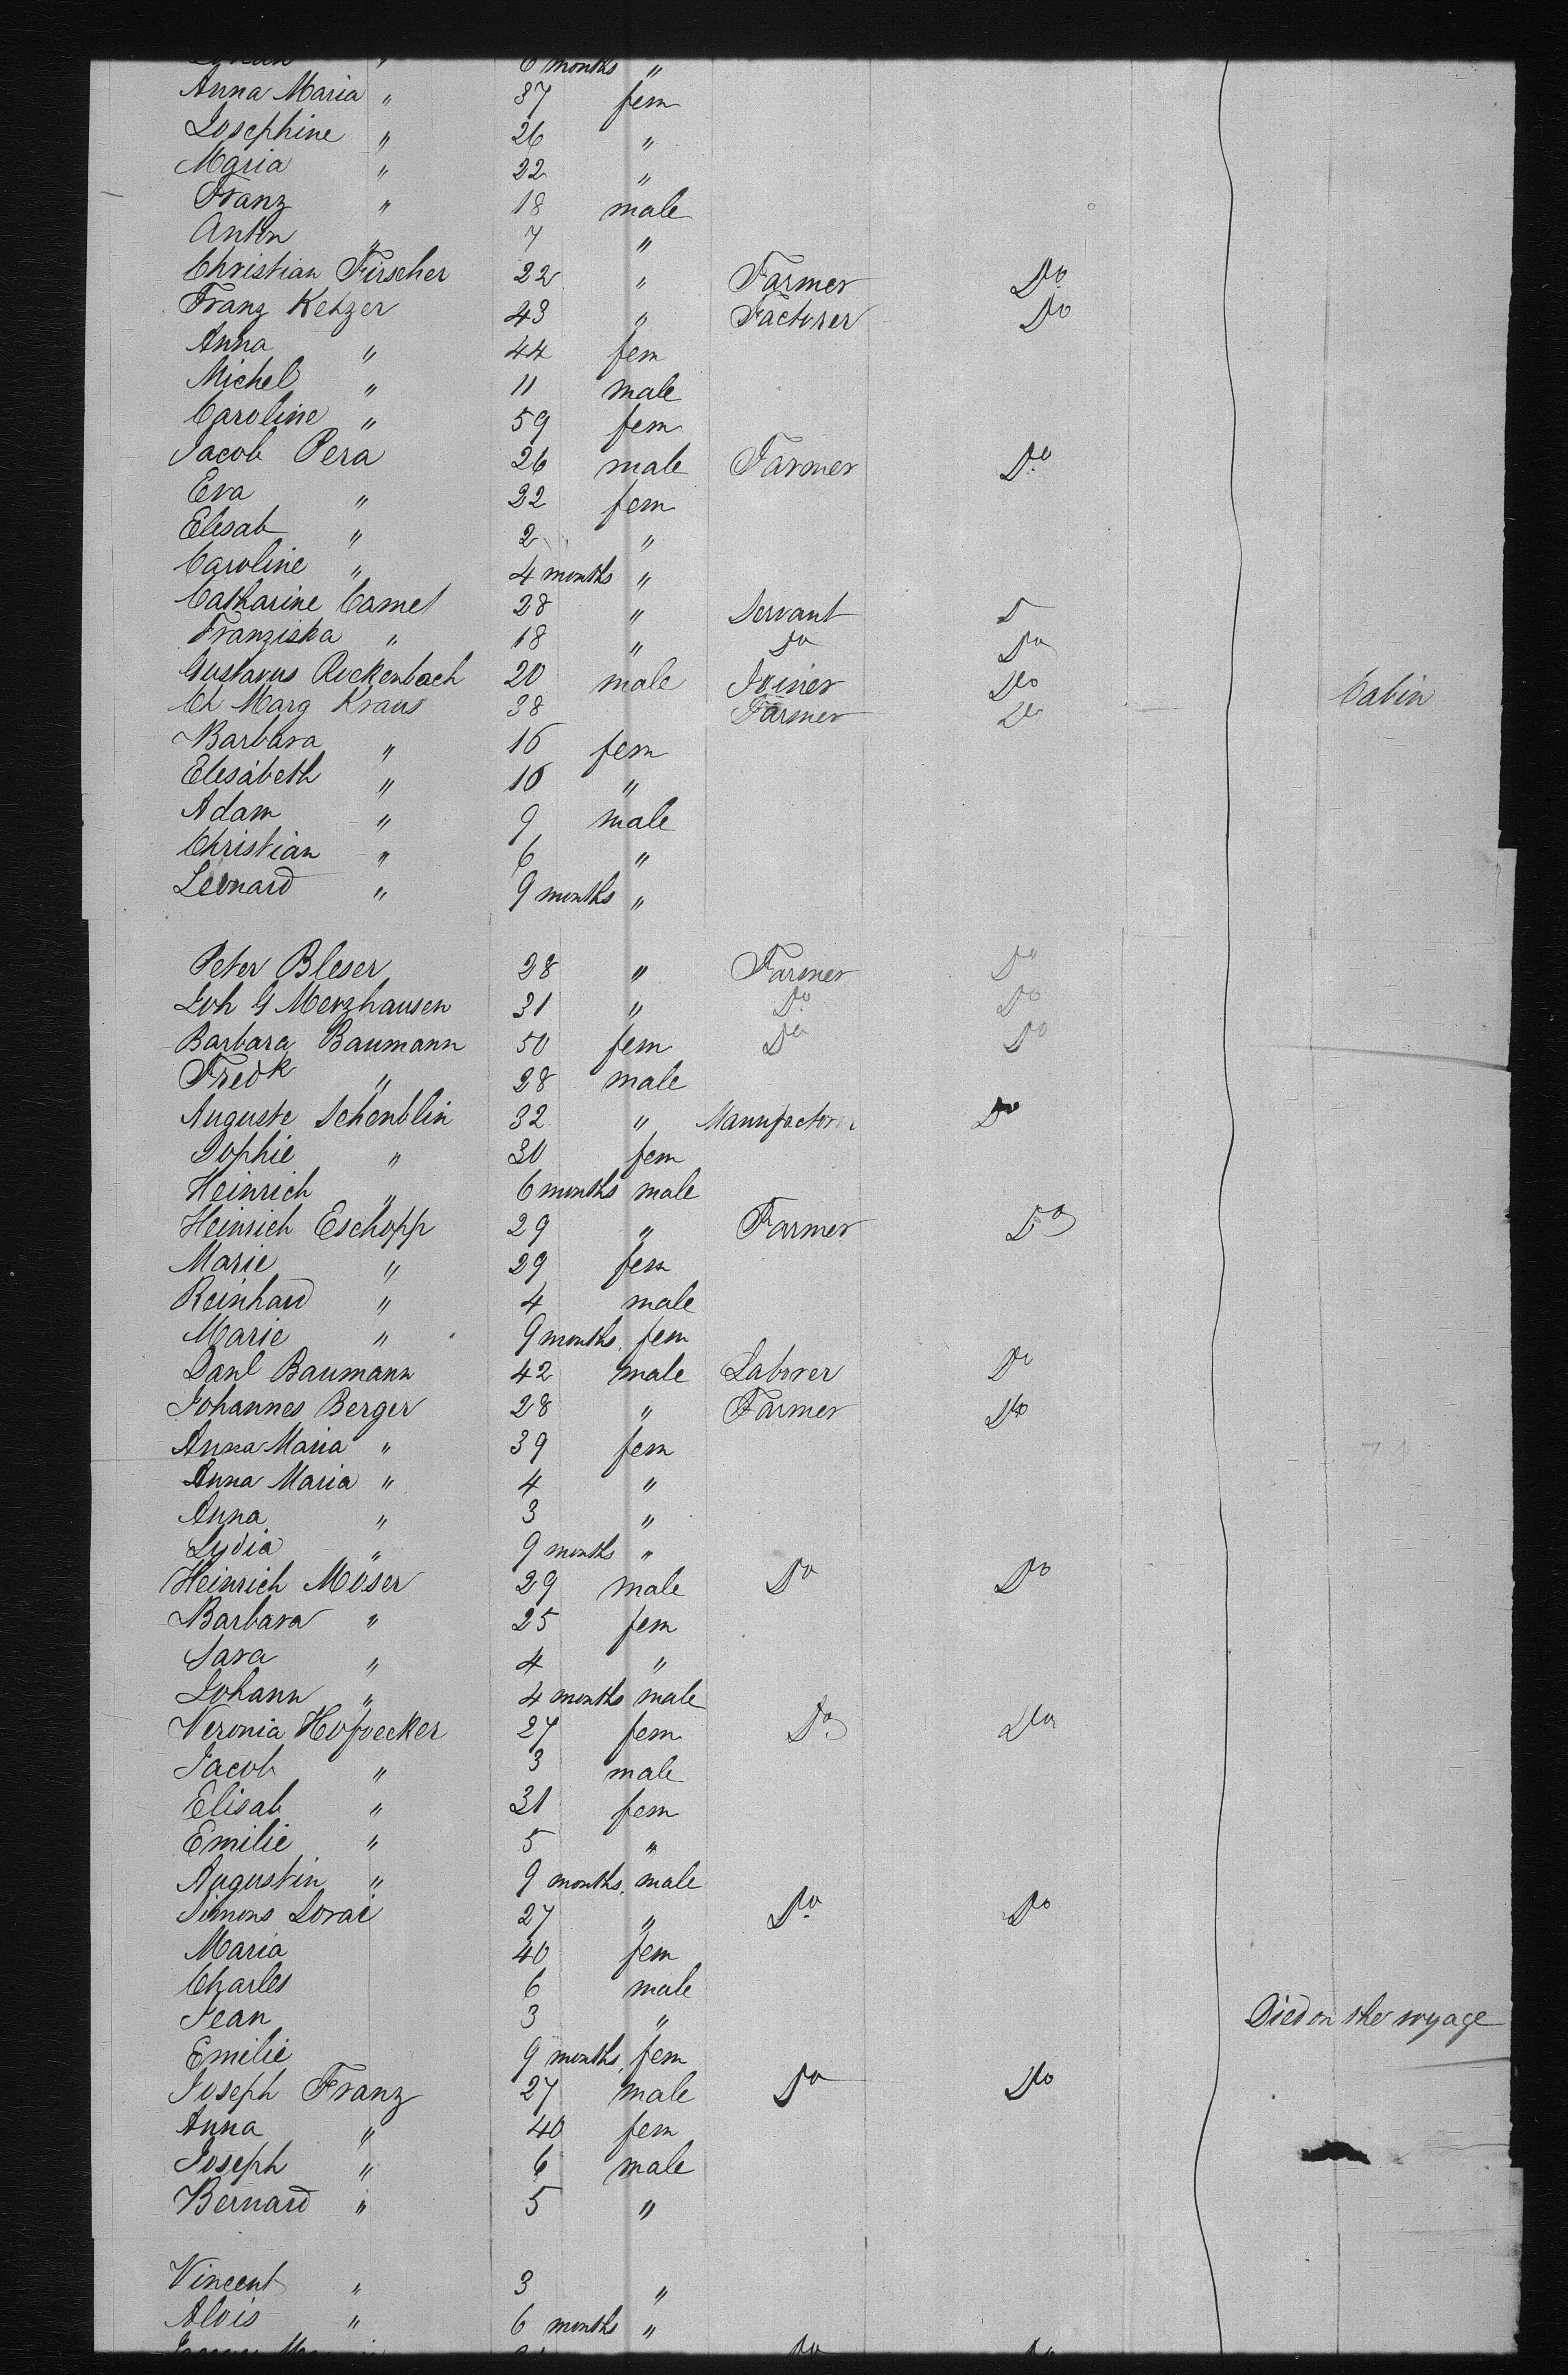 6 months "
Anna Maria " 37 fem
Josephine " 26 "
Maria " 22 "
Franz " 18 male
Anton " 7 "
Christian Firscher 22 " Farmer Do
Franz Ketzer 43 " Factorer Do
Anna " 44 fem
Michel " 11 male
Caroline " 59 fem
Jacob Pera 26 male Farmer Do
Eva " 22 fem
Elesab " 2 "
Caroline " 4 months "
Catharine Camel 28 " Servant D
Franziska " 18 " Do Do
Gustavus Rockenbach 20 male Joiner Do
Ch Marg Kraus 38 Farmer Do Cabin
Barbara " 16 fem
Elesabeth " 10 "
Adam " 9 male
Christian " 6 "
Leonard " 9 months "
Peter Bleser 28 " Farmer Do
Joh G Merzhausen 31 " Do Do
Barbara Baumann 50 fem Do Do
Fredk " 28 male
Auguste Schenblin 32 " Manufactorer Do
Sophie " 30 fem
Heinrich " 6 months male
Heinrich Eschopp 29 " Farmer Do
Marie " 29 fem
Reinhard " 4 male
Marie " 9 months fem
Danl Baumann 42 male Laborer Do
Johannes Berger 28 " Farmer Do
Anna Maria " 39 fem
Anna Maria " 4 "
Anna " 3 "
Lydia " 9 months "
Heinrich Moser 29 male Do Do
Barbara " 25 fem
Sara " 4 "
Johann " 4 months male
Veronia Hofoecker 27 fem Do Do
Jacob " 3 male
Elisab " 31 fem
Emilie " 5 "
Augustin " 9 months male
Simons Lorai 27 " Do Do
Maria 40 fem
Charles 6 male
Jean 3 " Died on the voyage
Emilie 9 months fem
Joseph Franz 27 male Do Do
Anna " 40 fem
Joseph " 6 male
Bernard " 5 "
Vincent " 3 "
Alois " 6 months "